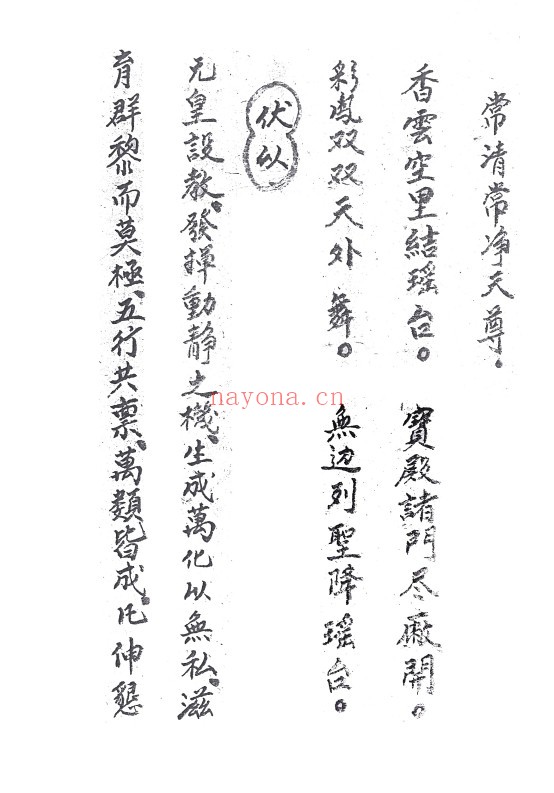 常清常净天尊.
香雲空里結瑶台。 寶殿諸門尽厰開。
彩鳳双双天外舞。 無边列聖降瑶台。
伏以
元皇設教、發揮動静之機、生成萬化以無私、滋
育群黎而莫極、五行共禀、萬類皆成、凡伸懇
nayona.cn